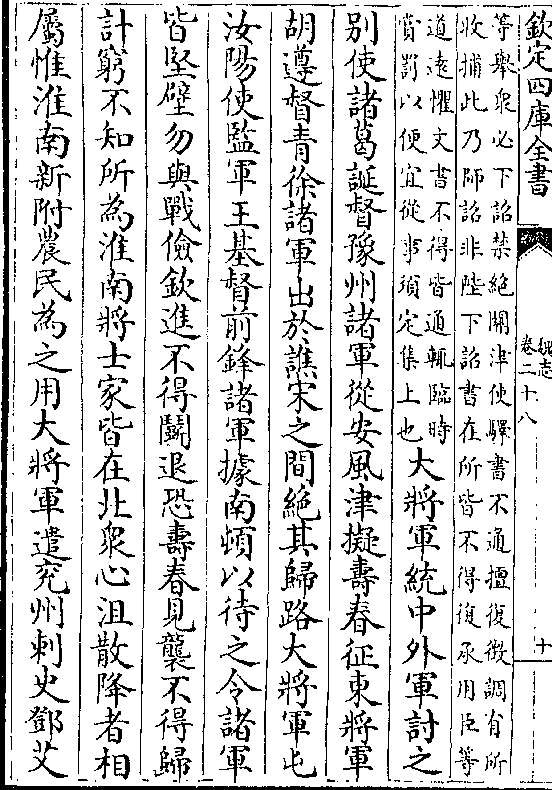 欽定四庫全書
魏志
卷二十八
十
等舉衆必下詔禁絶關津使驛書不通擅復徵調有所
收捕此乃師詔非陛下詔書在所皆不得復承用臣等
道遠懼文書不得皆通輒臨時
賞罰以便宜從事須定集上也
大將軍統中外軍討之
別使諸葛誕督豫州諸軍從安風津擬壽春征東將軍
胡遵督青徐諸軍出於譙宋之間絶其歸路大將軍屯
汝陽使監軍王基督前鋒諸軍據南頓以待之令諸軍
皆堅壁勿與戰儉欽進不得鬭退恐壽春見襲不得歸
計窮不知所為淮南將士家皆在北衆心沮散降者相
屬惟淮南新附農民為之用大將軍遣兖州刺史鄧艾